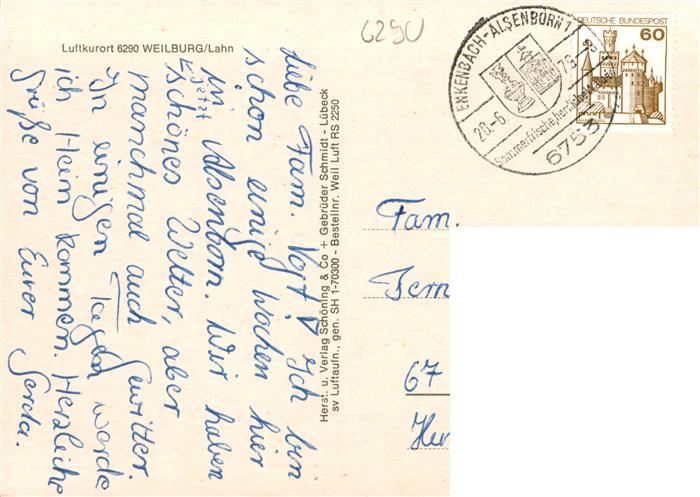 Luftkurort 6290 WEILBURG/Lahn
6290
ENKENBACH-ALSENBORN 1
20.-6.
Sommerfrische, herrliche
675
DEUTSCHE BUNDESPOST
60
Liebe Fam. Vogt! Ich bin
schon einige Wochen hier
in Alsenborn. Wir haben
jetzt schönes Wetter, aber
manchmal auch Gewitter.
In einigen Tagen werde
ich Heim kommen. Herzliche
Grüße von Eurer Gerda.
Herst. u. Verlag Schöning & Co + Gebrüder Schmidt - Lübeck
sv Luftaufn., gen. SH 1-70300 - Bestellnr. Weil Luft RS 2250
Fam.
Fern
67